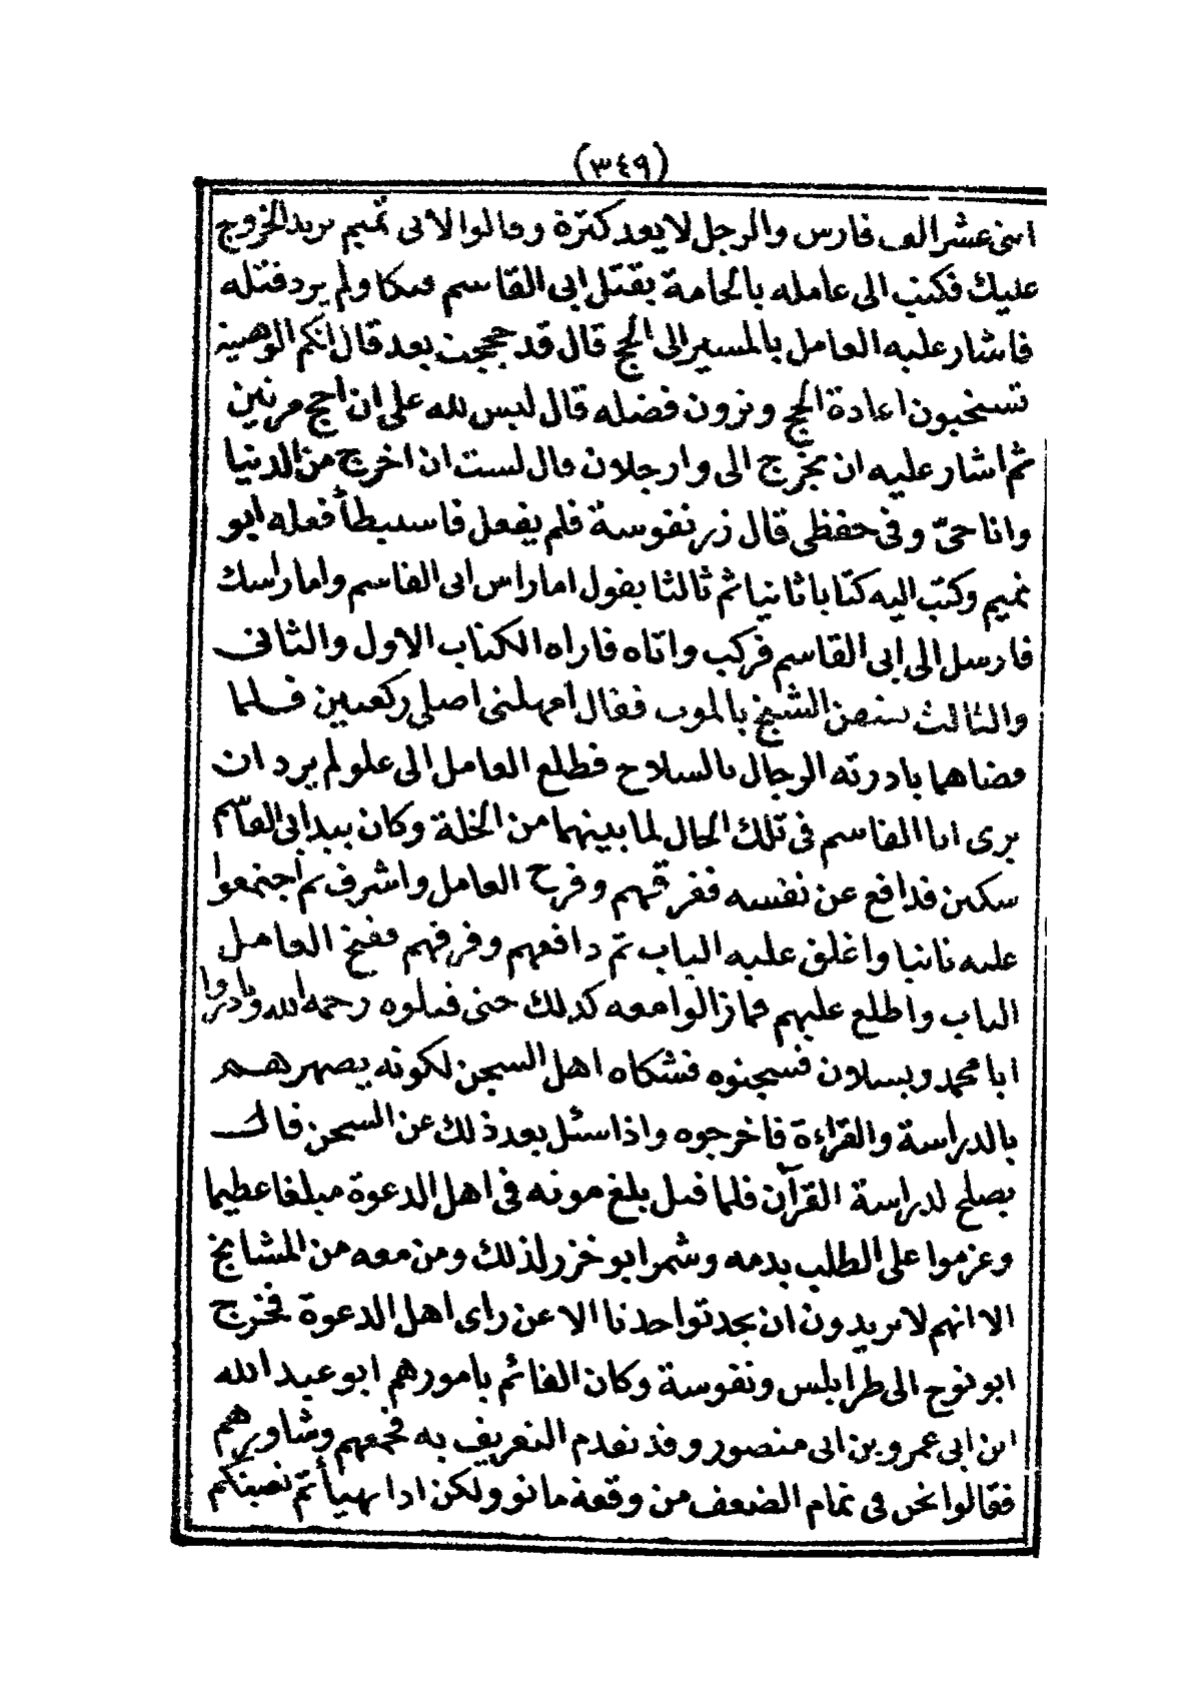 (٣٤٩)
اثنى عشر الف فارس والرجل لا يعد كثرة وقالوا لابى تميم يريد الخروج
عليك فكتب الى عامله بالحامة بقتل ابى القاسم فتلكا ولم يرد قتله
فاشار عليه العامل بالمسير الى الحج قال قد حججت بعد قال انكم الوهبية
تستحبون اعادة الحج وترون فضله قال ليس لله على ان احج مرتين
ثم اشار عليه ان يخرج الى وارجلان قال لست ان اخرج من الدنيا
وانا حىّ وفى حفظى قال زر نفوسة فلم يفعل فاستبطأ فعله ابو
تميم وكتب اليه كتابا ثانيا ثم ثالثا يقول اما راس ابى القاسم واما راسك
فارسل الى ابى القاسم فركب واتاه فاراه الكتاب الاول والثانى
والثالث الشيخ بالموت فقال امهلنى اصلى ركعتين فلما
قضاهما بادرته الرجال بالسلاح فطلع العامل الى علو لم يرد ان
يرى ابا القاسم فى تلك الحال لما بينهما من الخلة وكان بيد ابى القاسم
سكين فدافع عن نفسه ففرقهم وفرح العامل واشرف ثم اجتمعوا
عليه ثانيا واغلق عليه الباب ثم دافعهم وفرقهم ففتح العامل
الباب واطلع عليهم فما زالوا معه كذلك حتى قتلوه رحمه الله
ابا محمد ويسلان فسجنوه فشكاه اهل السجن لكونه يصهرهم
بالدراسة والقراءة فاخرجوه واذا سئل بعد ذلك عن السجن قال
يصلح لدراسة القرآن فلما قتل بلغ موته فى اهل الدعوة مبلغا عظيما
وعزموا على الطلب بدمه وشمر ابو خزر لذلك ومن معه من المشايخ
الا انهم لا يريدون ان يحدثوا حدثا الا عن راى اهل الدعوة فخرج
ابو نوح الى طرابلس ونفوسة وكان القائم بامورهم ابو عبد الله
ابن ابى عمرو بن ابى منصور وقد تقدم التعريف به فجمعهم وشاورهم
فقالوا نحن فى تمام الضعف من وقعة مانو ولكن اذا تهيأتم نصبناكم